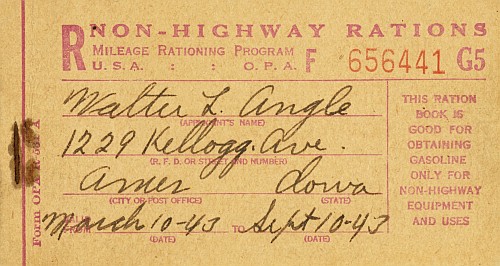 R NON-HIGHWAY RATIONS
MILEAGE RATIONING PROGRAM
U.S.A. : : O.P.A. F 656441 G5
Walter L. Angle
(APPLICANT'S NAME)
1229 Kellogg. Ave.
(R. F. D. OR STREET AND NUMBER)
Ames Iowa
(CITY OR POST OFFICE) (STATE)
March 10-43 TO Sept 10-43
(DATE) (DATE)
THIS RATION
BOOK IS
GOOD FOR
OBTAINING
GASOLINE
ONLY FOR
NON-HIGHWAY
EQUIPMENT
AND USES
Form OPA